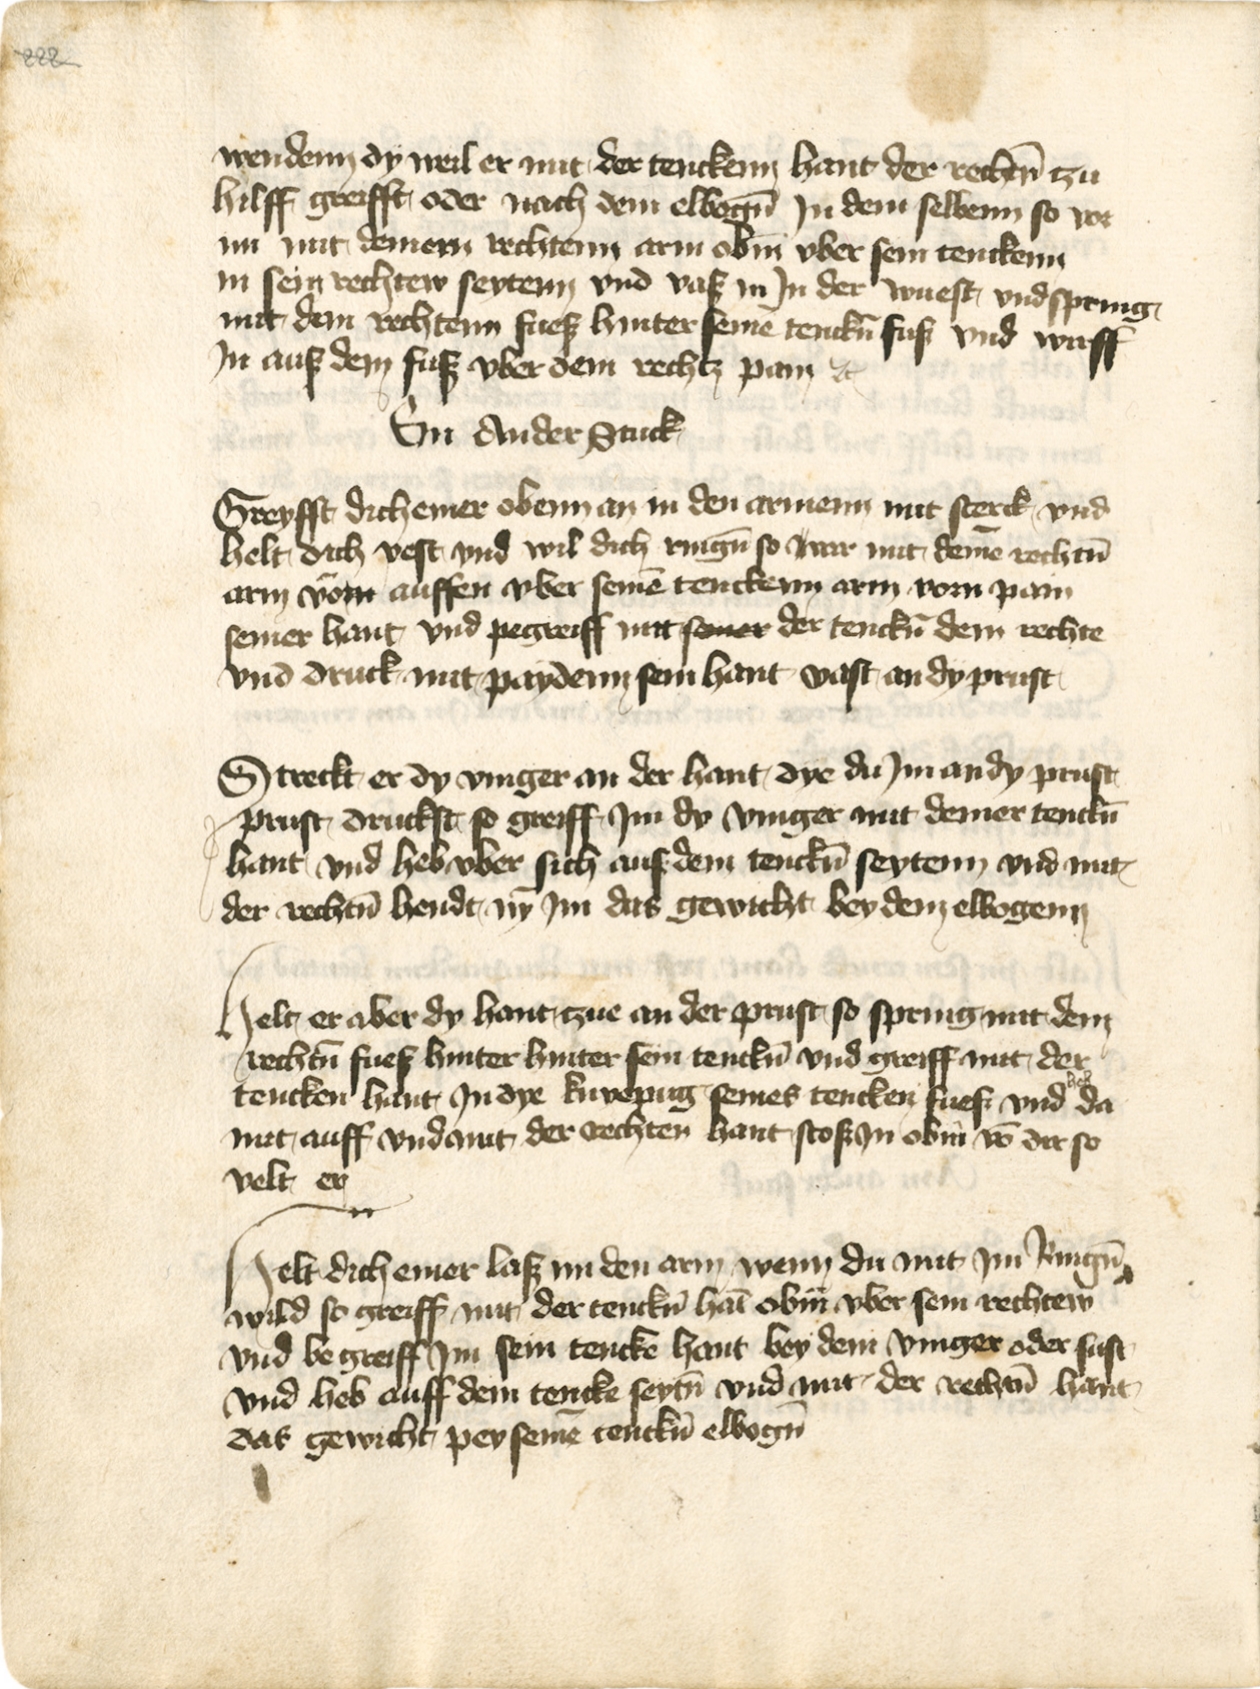 wendenn dy weil er mit der tenckenn hant der rechtn̄ zu
hilff greifft oder nach dem elbogn̄ In dem selbenn so var
im mit deinem rechtenn arm obn̄ vber sein tenckenn
in sein rechtew seytenn vnd vaß in In der wuest vnd spring
mit dem rechtenn fueß hinter seinē tenckn̄ fuß vnd wirff
In auß dem fuß vber dem rechtz pain ⁊c
Ein Ander Stuck
Greyfft dich einer obenn an in den armenn mit sterck vnd
helt dich vest vnd wil dich ringn̄ so var mit deinē rechtn̄
arm vōn aussen vber seinē tenckenn arm vorn pain
seiner hant vnd pegreiff mit seiner der tenckn̄ dem rechte
vnd druck mit paydenn sein hant vast an dy prust
Streckt er dy vinger an der hant dye du Im an dy prust
prust druckst so greiff Im dy vinger mit deiner tenckn̄
hant vnd heb vber sich auf dein tenckn̄ seytenn vnd mit
der rechtn̄ hendt ny̅ Im das gewicht bey dem elbogenn
Helt er aber dy hant zue an der prust so spring mit dem
rechtn̄ fueß hinter hinter sein tenckn̄ vnd greiff mit der
tencken hant In dye kniepüg seines tencken fueß vnd heb da
mit auff vnd mit der rechten hant stoß In obn̄ vō dir so
velt er
Helt dich einer laß in den arm wenn du mit Im Ringn̄
wild so greiff mit der tenckn̄ hāt obn̄ vber sein rechtew
vnd begreiff Im sein tencke hant bey dem vinger oder sust
vnd heb auff dein tencke seytn̄ vnd mit der rechtn̄ hant
das gewicht pey seinē tenckn̄ elbogn̄